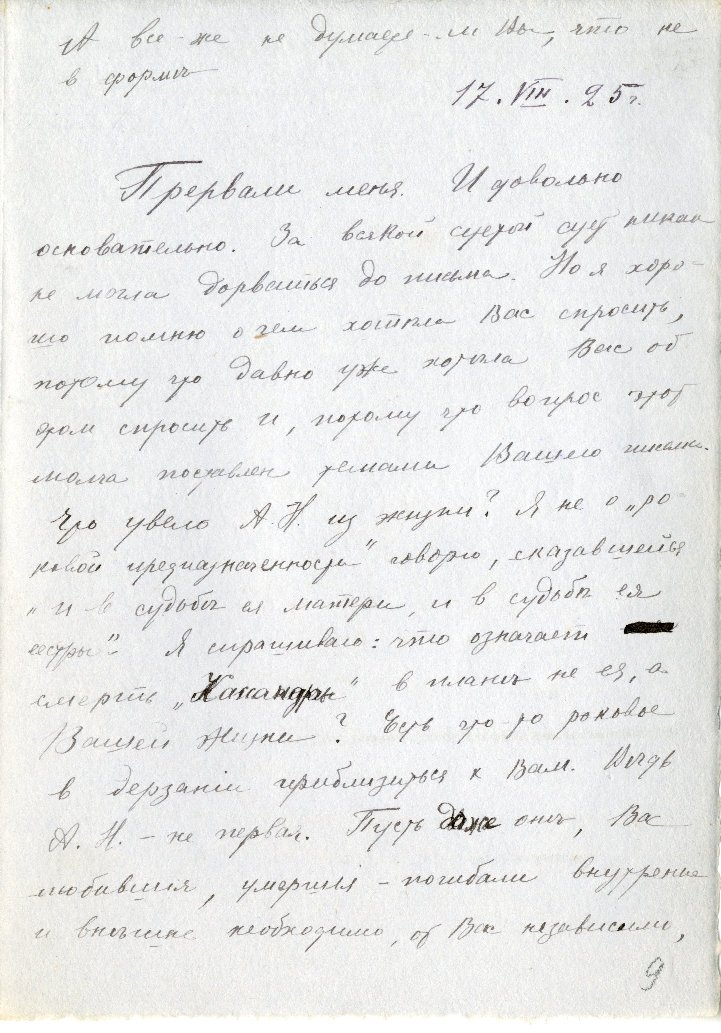 А все-же не думаете-ли Вы, что не
в форме
17. VIII. 25 г.
Прервали меня. И довольно
основательно. За всякой суетой сует никак
не могла дорваться до письма. Но я хоро-
шо помню о чем хотела Вас спросить,
потому что давно уже хотела Вас об
этом спросить и, потому что вопрос этот
молча поставлен темами Вашего
Что увело А. Н. из жизни? Я не о „ро
ковой предназначенности" говорю, сказавшейся
„и в судьбѣ ея матери, и в судьбѣ ея
сестры". Я спрашиваю: что означает
смерть „Кассандры" в планѣ не ея, а
Вашей жизни? Есть что-то роковое
в дерзаніи приблизиться к Вам. Вѣдь
А. Н. – не первая. Пусть даже онѣ, Вас
любившія, умершія – погибали внутренне
и внѣшне необходимо, от Вас независимо,
9